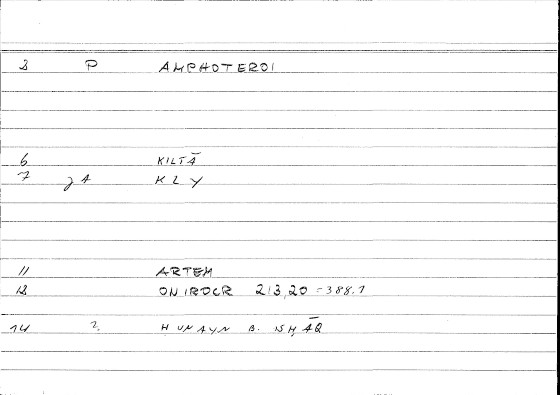 3 P AMPHOTEROI
6 KILTĀ
7 JA KLY
11 ARTEM
12 ONIROCR 213,20 = 388.1
14 2. HUNAYN B. ISḤĀQ